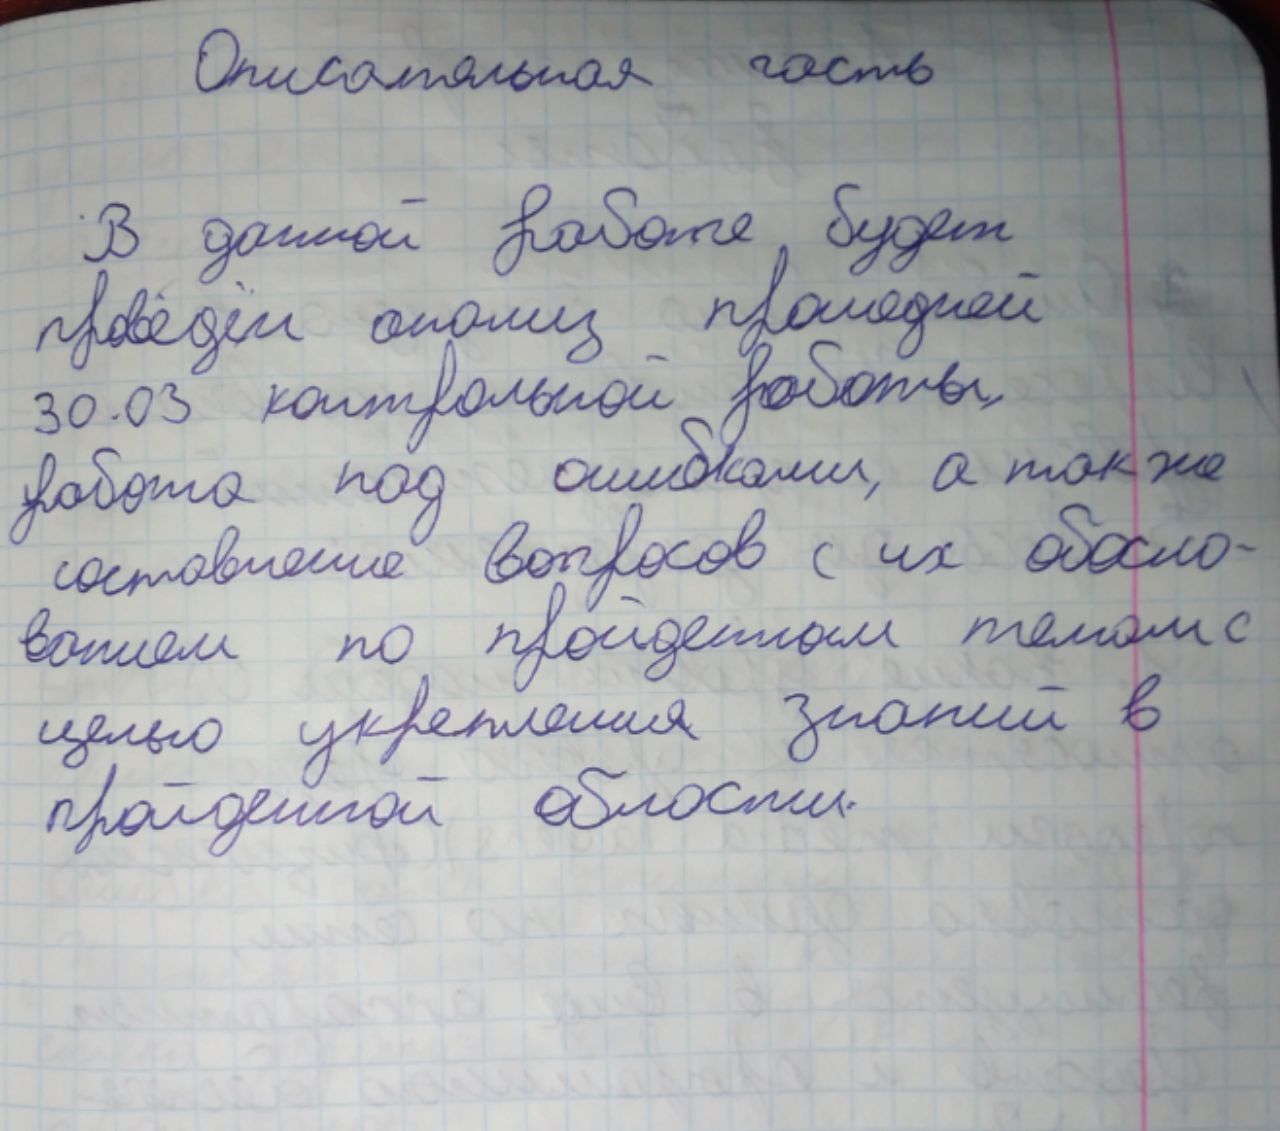 Описательная часть
В данной работе будет
проведён анализ прошедшей
30.03 контрольной работы,
работа над ошибками, а также
составление вопросов с их обосно-
ванием по пройденным темам с
целью укрепления знаний в
пройденной области.